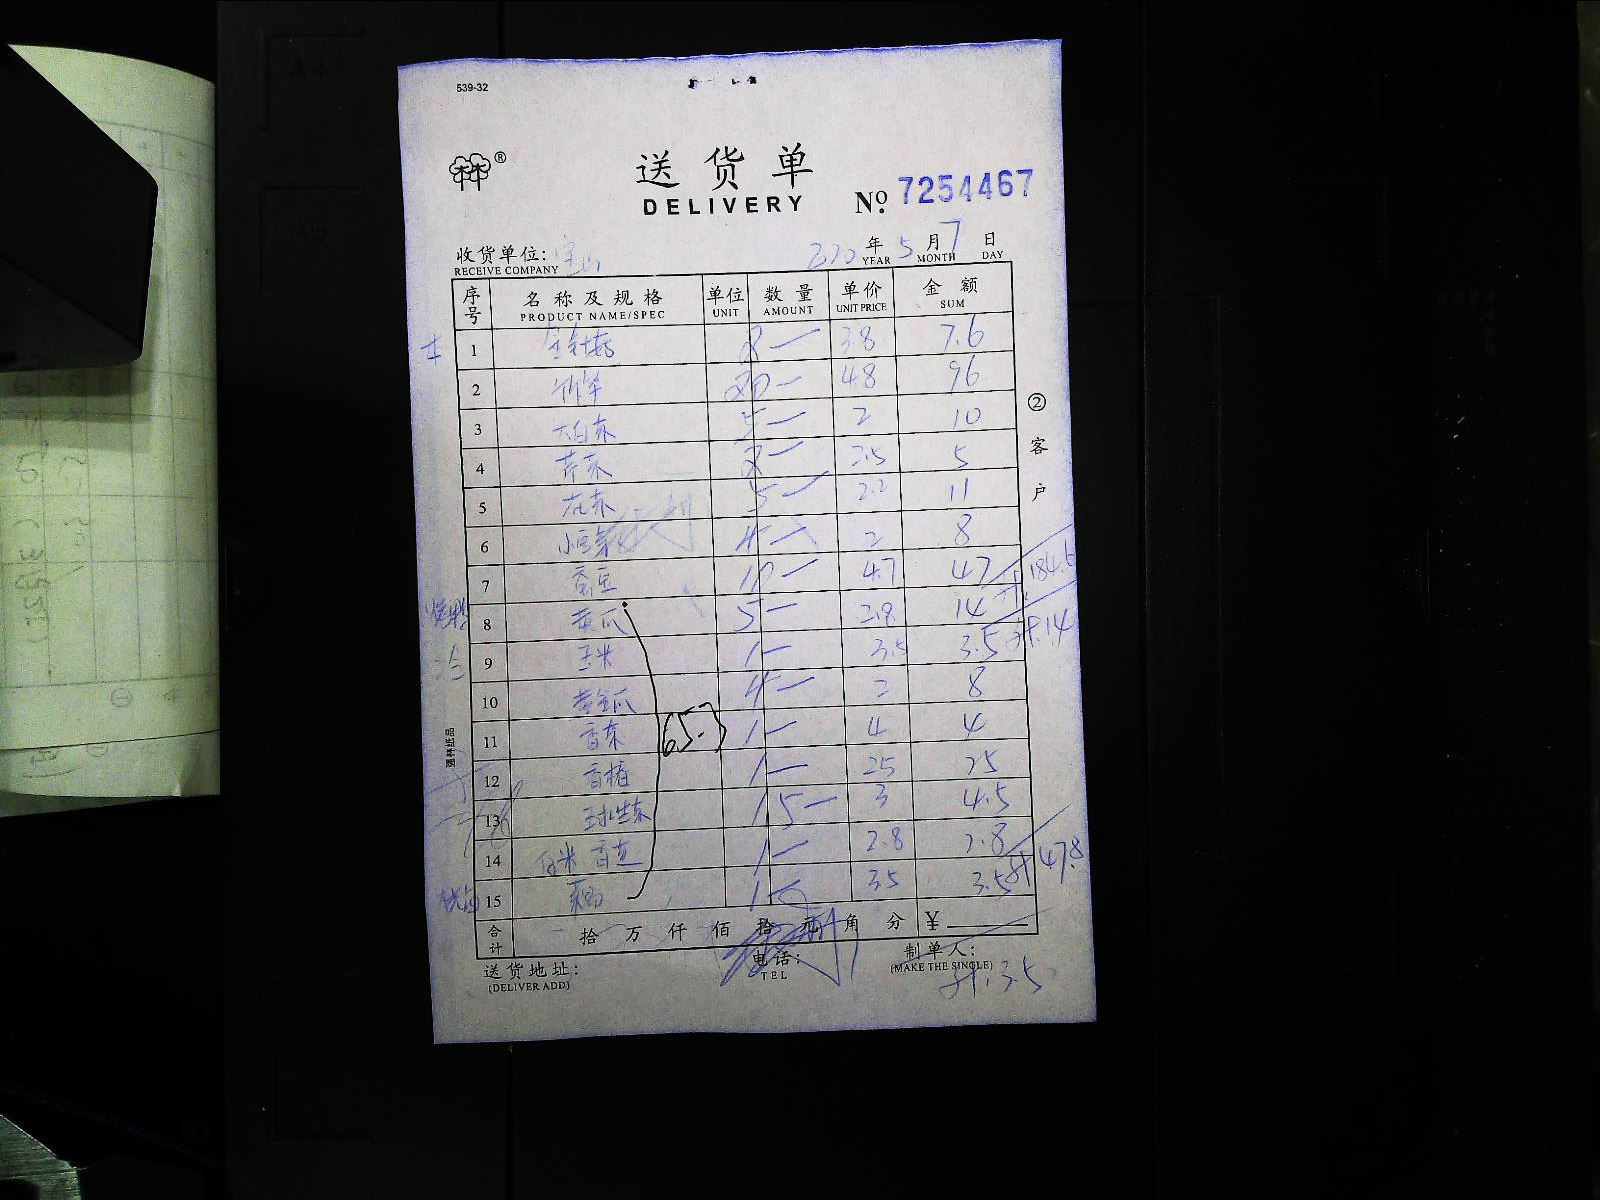 539-32
送货单
DELIVERY
№ 7254467
收货单位: 宝山
RECEIVE COMPANY
年 5 月 7 日
YEAR MONTH DAY
序号 名称及规格 单位 数量 单价 金额
PRODUCT NAME/SPEC UNIT AMOUNT UNIT PRICE SUM
1 金针菇 2 3.8 7.6
2 竹笋 20 4.8 96
3 大白菜 5 2 10
4 芹菜 2 2.5 5
5 花菜 5 2.2 11
6 4 2 8
7 蚕豆 10 4.7 47 计. 184.6
8 黄瓜 5 2.8 14 计.14
9 玉米 1 3.5 3.5
10 黄金瓜 4 2 8
11 香菜 1 4 4
12 香椿 1 25 25
65.-
13 球生菜 1.5 3 4.5
14 1 2.8 2.8 计 47.8
15 1 3.5 3.5
合计 拾 万 仟 佰 拾 元 角 分 ¥
送货地址:
(DELIVER ADD)
电话:
TEL
制单人:
(MAKE THE SINGLE)
计.3.5
②客户
强林纸品